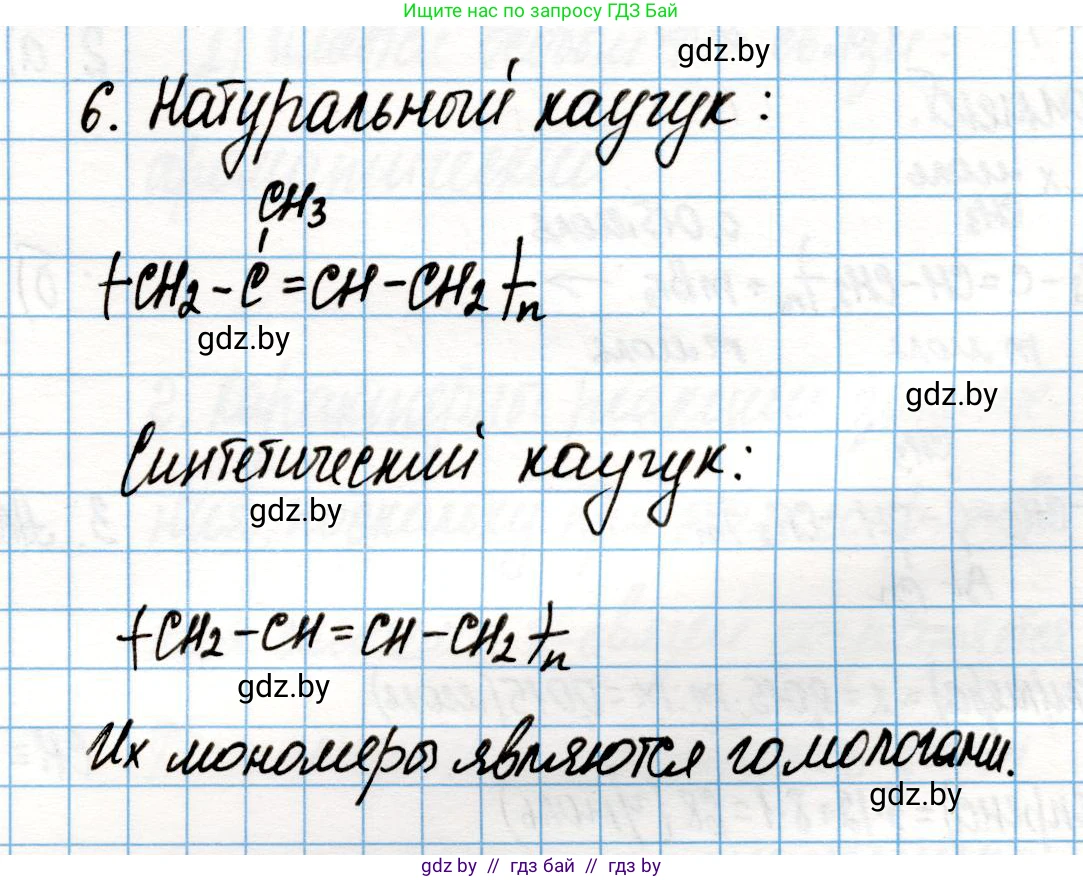 Ищите нас по запросу ГДЗ Бай
gdz.by
6. Натуральный каучук:
CH3
(-CH2-C=CH-CH2-)n
gdz.by
gdz.by
Синтетический каучук:
gdz.by
(-CH2-CH=CH-CH2-)n
gdz.by
Их мономеры являются гомологами.
gdz.by
gdz.by // гдз бай // гдз by